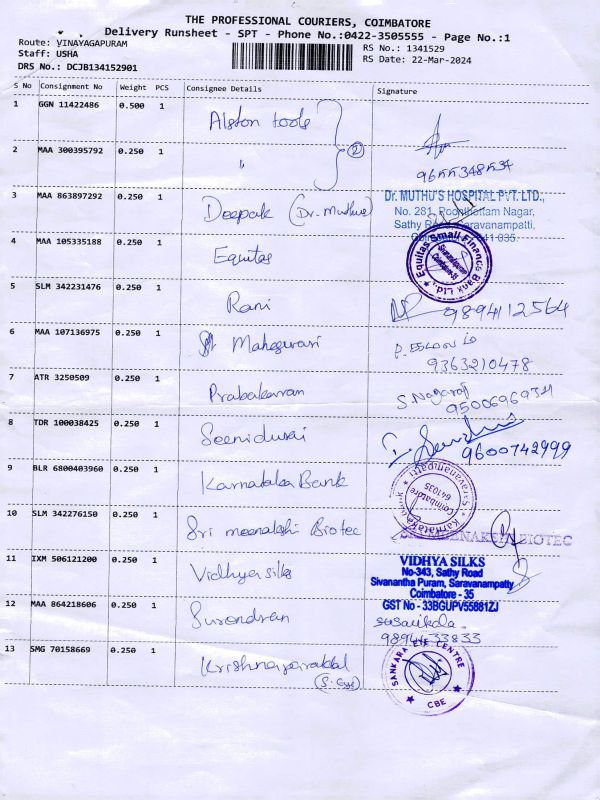 THE PROFESSIONAL COURIERS, COIMBATORE
Delivery Runsheet - SPT - Phone No.:0422-3505555 - Page No.:1
Route: VINAYAGAPURAM
RS No.: 1341529
Staff: USHA
RS Date: 22-Mar-2024
DRS No.: DCJB134152901
S No Consignment No Weight PCS Consignee Details Signature
1 GGN 11422486 0.500 1 Alston tools
2 MAA 300395792 0.250 1 " 2
3 MAA 863897292 0.250 1 Deepak (Dr. Muthus)
Dr. MUTHU'S HOSPITAL PVT. LTD.,
No. 281, Poonthottam Nagar,
Sathy Road, Saravanampatti,
4 MAA 105335188 0.250 1 Equitas
Equitas Small Finance Bank Ltd.
5 SLM 342231476 0.250 1 Rani 9894112564
6 MAA 107136975 0.250 1 Maheswari
9363210478
7 ATR 3250509 0.250 1 Prabakaran S. Nagaraj
9500696934
8 TDR 100038425 0.250 1 Seenidurai
9600742999
9 BLR 6800403960 0.250 1 Karnataka Bank
Karnataka Bank Saravanampatti
Coimbatore
641035
10 SLM 342276150 0.250 1 Sri meenakshi Biotec
MEENAKSHI BIOTEC
11 IXM 506121200 0.250 1 Vidhya silks
VIDHYA SILKS
No-343, Sathy Road
Sivanantha Puram, Saravanampatty
Coimbatore - 35
GST No - 33BGUPV55881ZJ
12 MAA 864218606 0.250 1 Surendran sasarikala
9894433833
13 SMG 70158669 0.250 1 Krishna
(S. Eye)
SANKARA EYE CENTRE
CBE